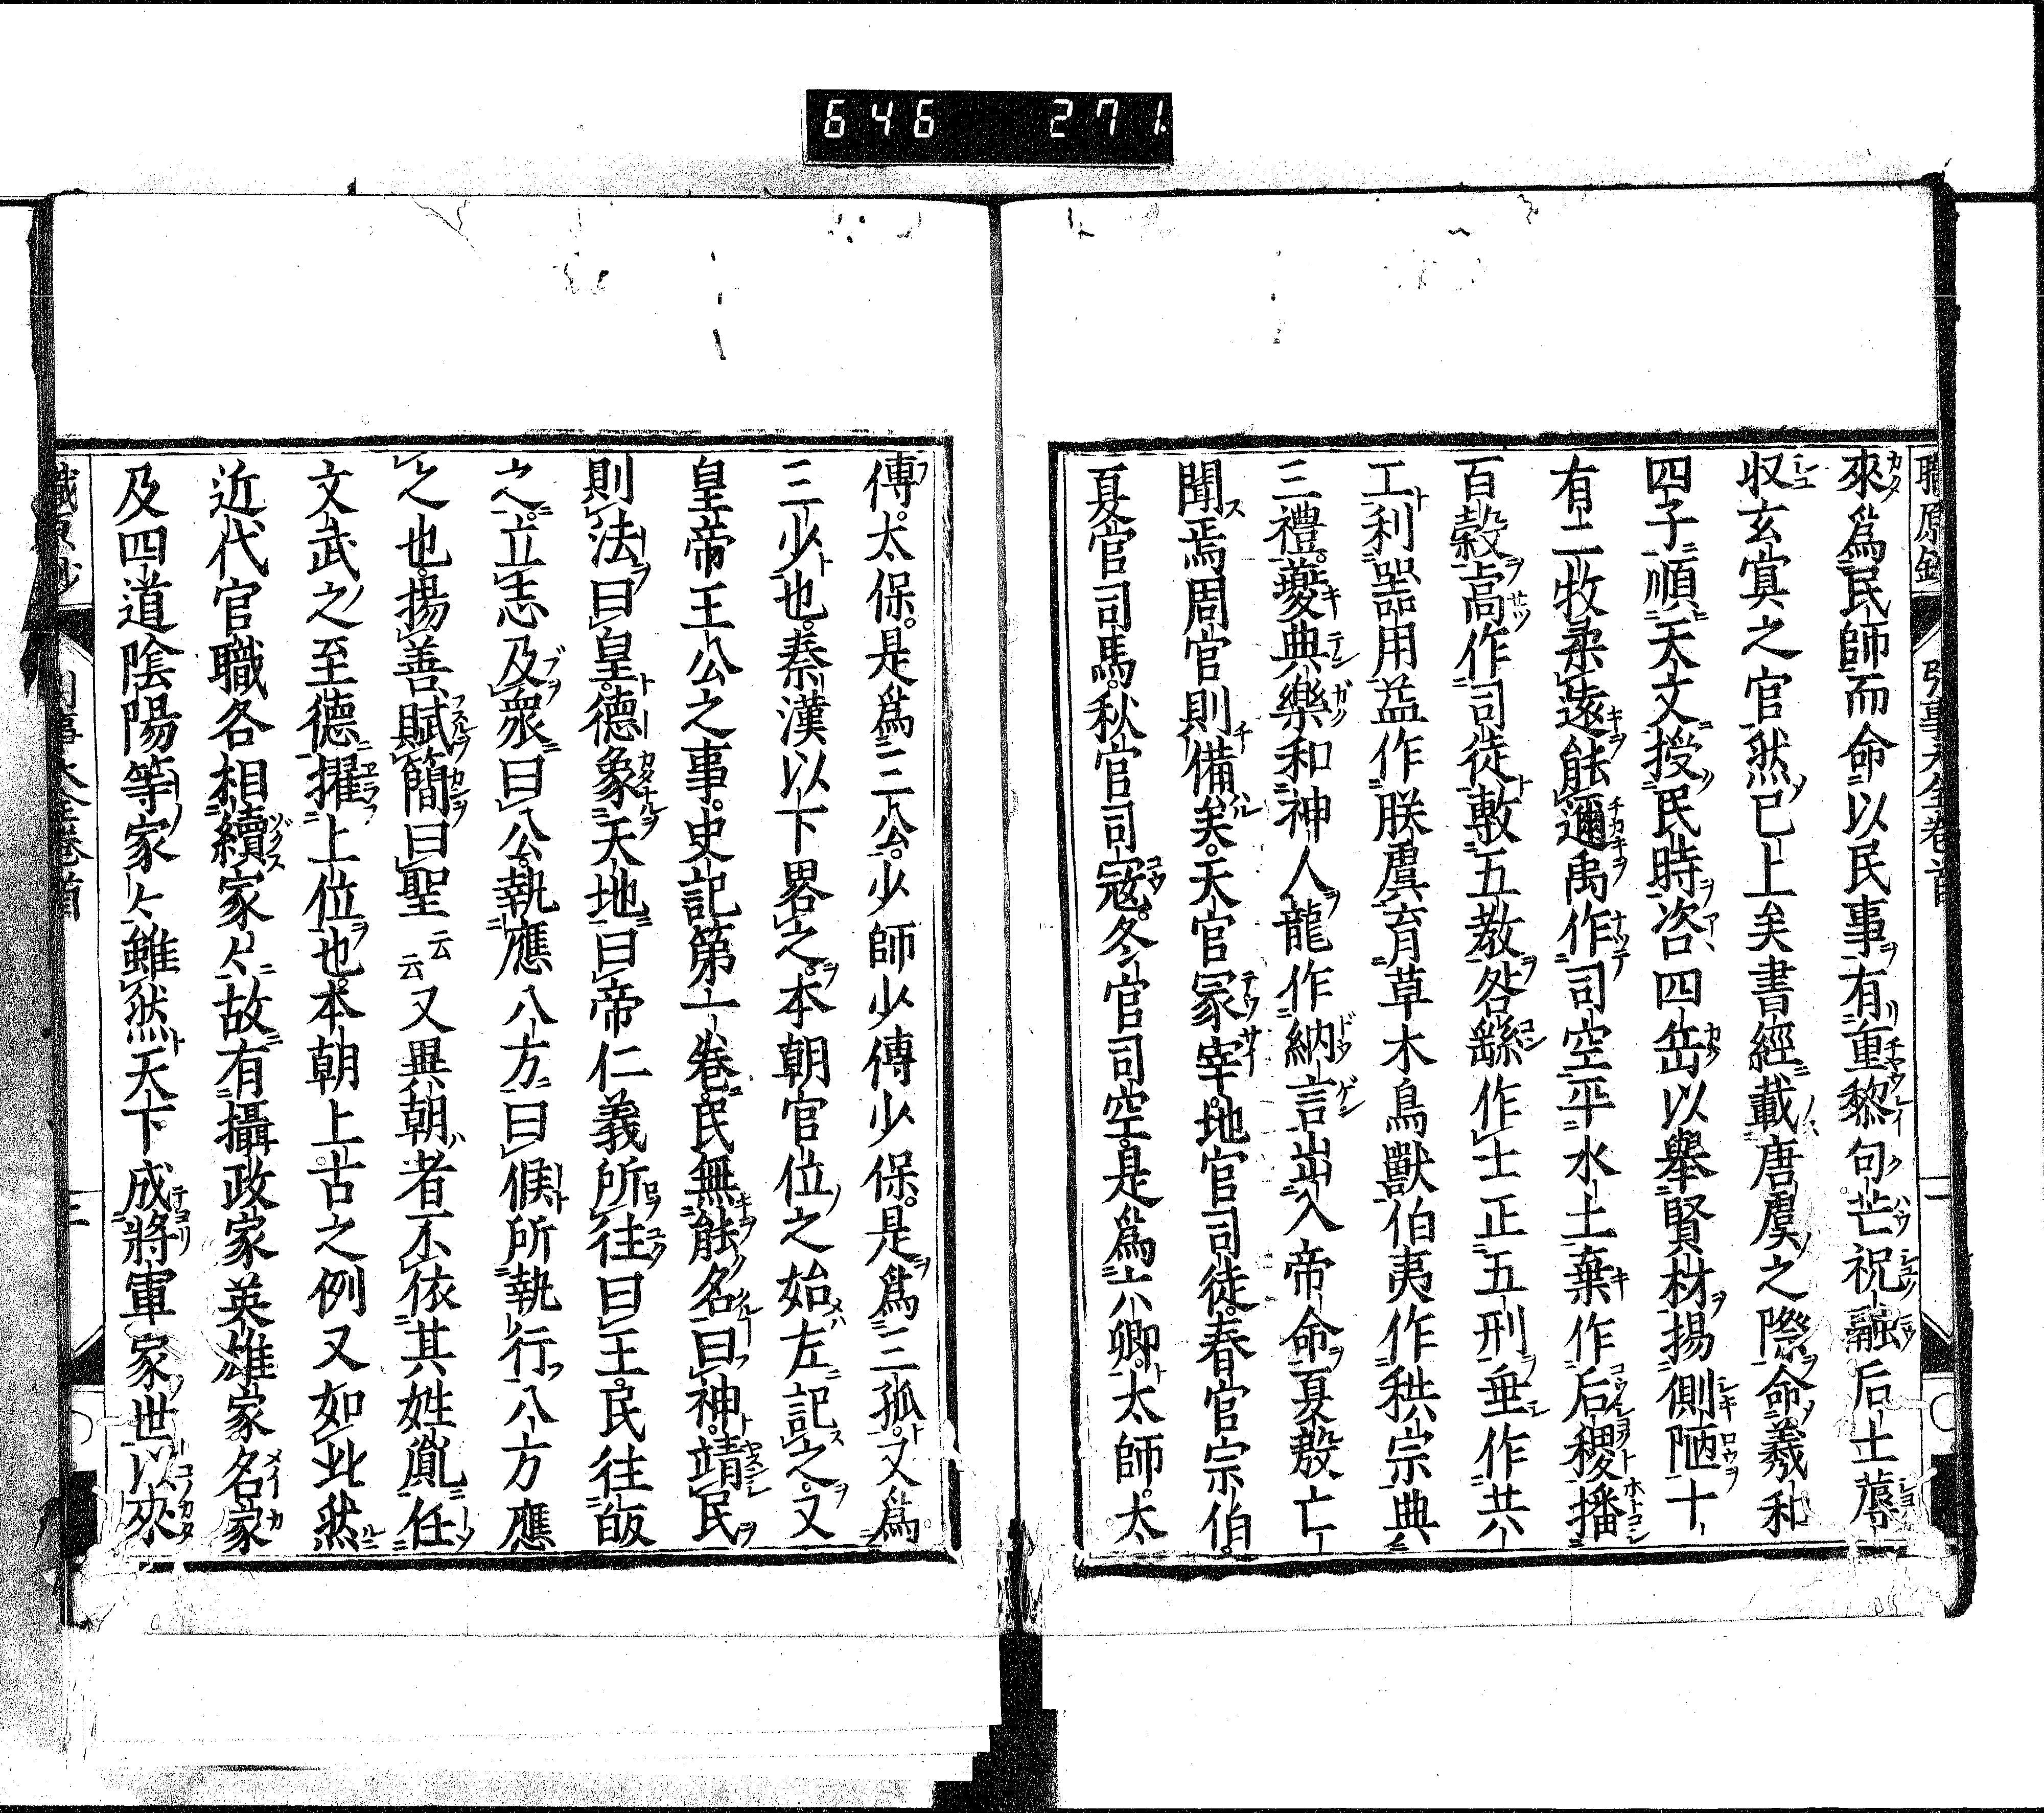 646 271
來為民師而命以民事有重黎句芒祝融后土蓐
収玄冥之官然已上矣書經載唐虞之際命羲和
四子順天文授民時咨四岳以舉賢材揚側陋十
有二牧柔遠能邇禹作司空平水土棄作后稷播
百穀卨作司徒敷五教咎繇作士正五刑垂作共
工利器用益作朕虞育草木鳥獸伯夷作秩宗典
三禮夔典樂和神人龍作納言出入帝命夏殷亡
聞焉周官則備矣天官冢宰地官司徒春官宗伯
夏官司馬秋官司寇冬官司空是為六卿太師太
傅太保是為三公少師少傅少保是為三孤又為
三少也秦漢以下畧之本朝官位之始左記之又
皇帝王公之事史記第一卷民無能名曰神靖民
則法曰皇德象天地曰帝仁義所往曰王民往皈
之立志及衆曰公執應八方曰候所執行八方應
之也揚善賦簡曰聖云云又異朝者不依其姓胤任
文武之至德擢上位也本朝上古之例又如此然
近代官職各相續家々故有攝政家英雄家名家
及四道陰陽等家々雖然天下成將軍家世以來